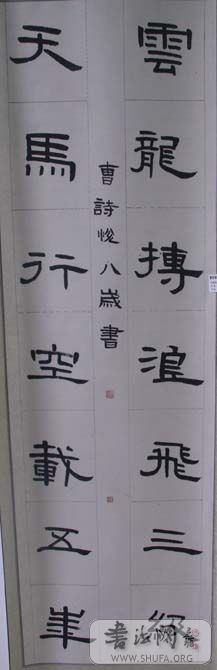 雲龍搏浪飛三級
天馬行空載五
曹詩悛八歲書
書法網
WWW.SHUFA.ORG